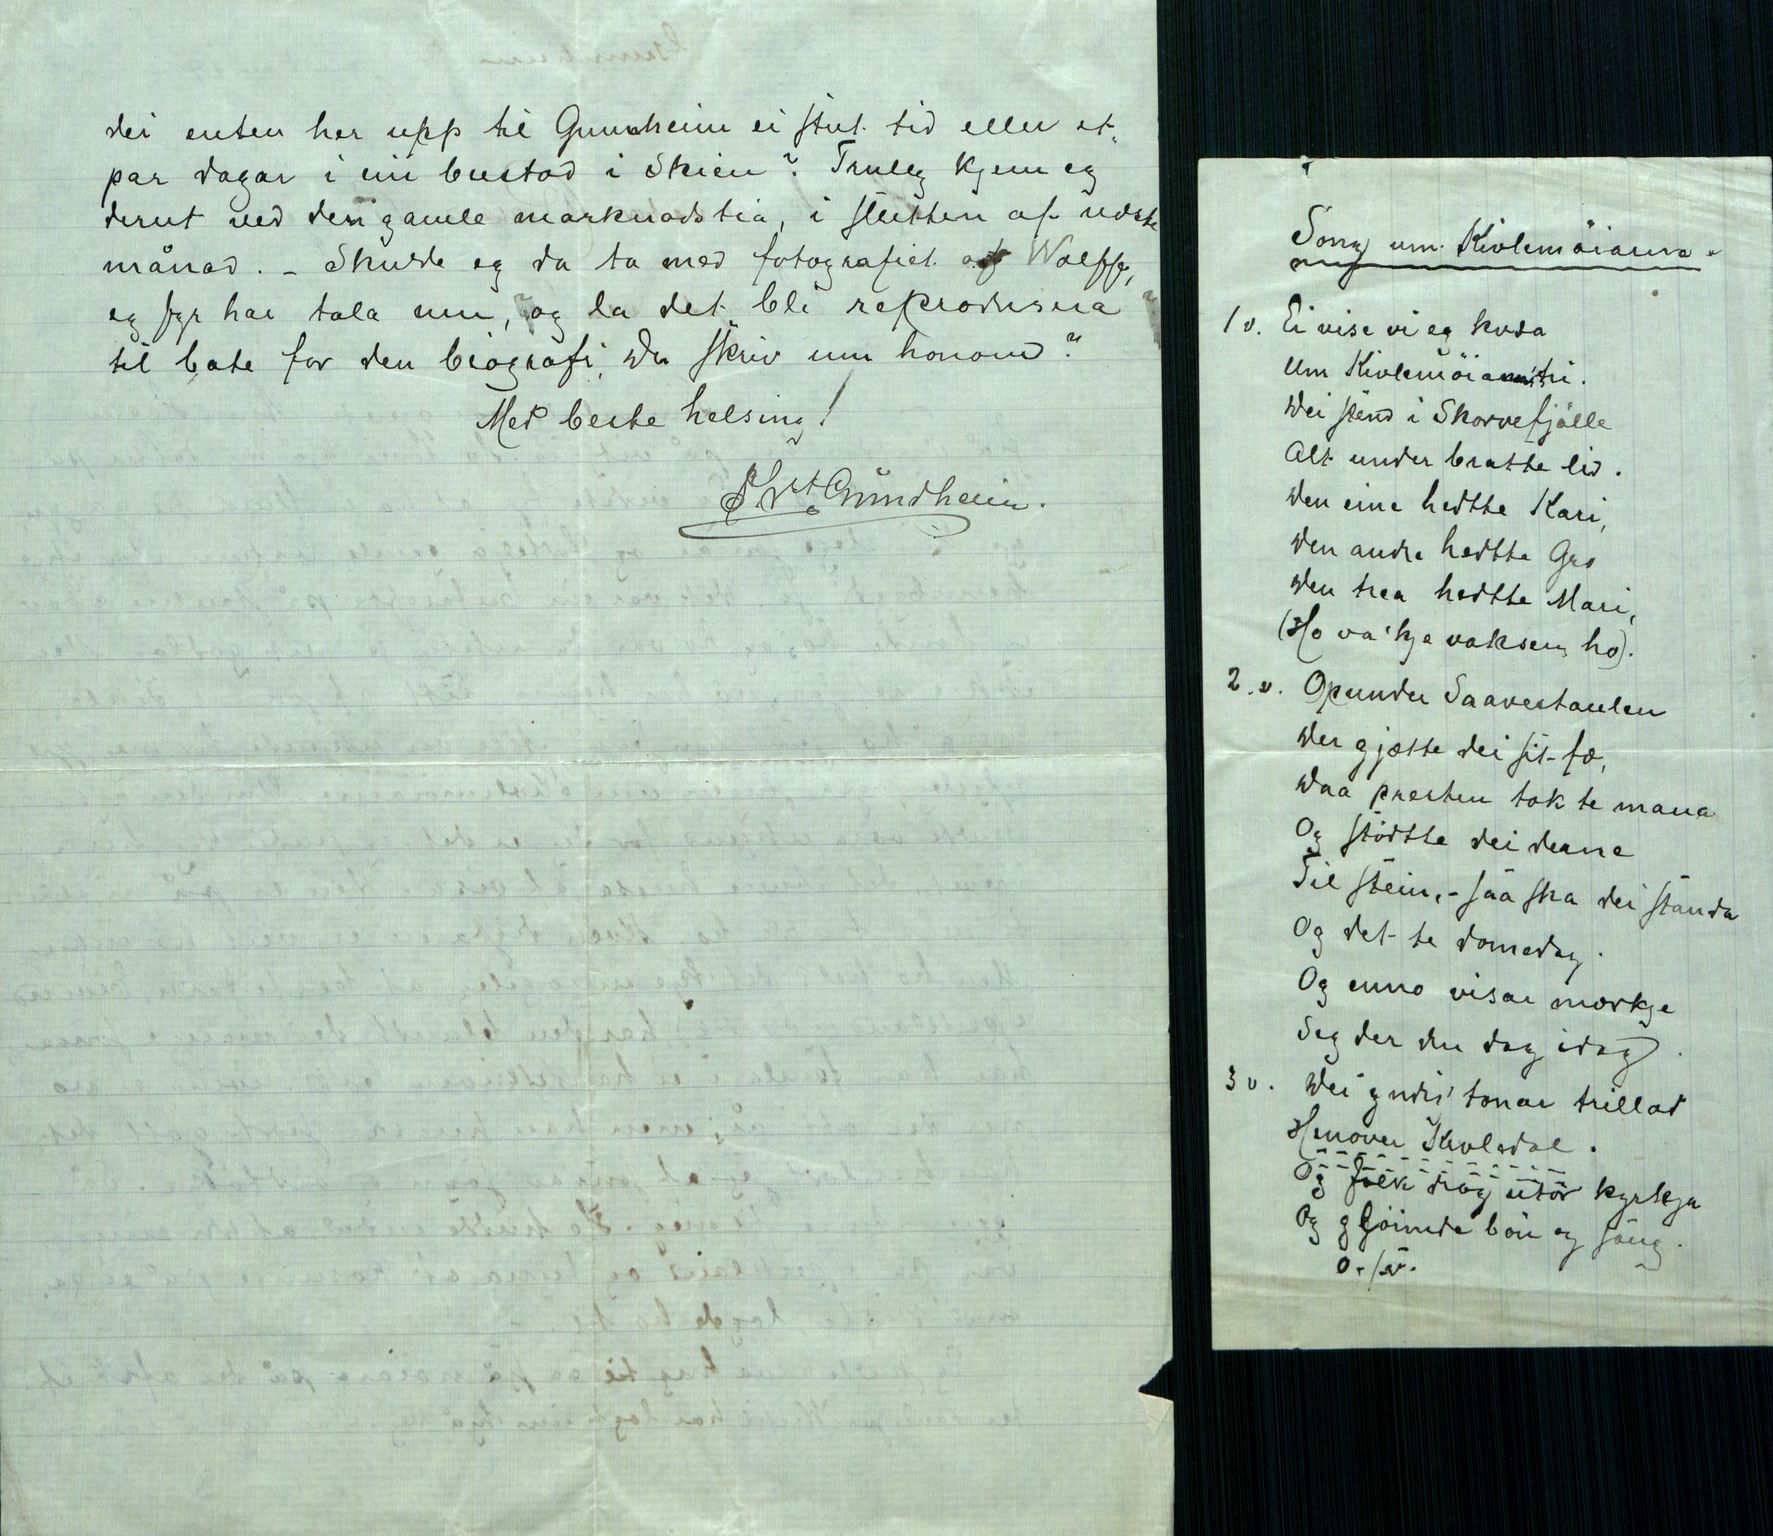 dei enten her upp til Gunnheim ei stut tid eller et
par dagar i min bustad i Skien? Truleg kjem eg
derut ved den gamle marknadstia, i slutten af næste
månad. – Skulde eg da ta med fotografiet af Wolff,
eg fyr har tala um, og la det bli reprodusera
til bate for den biografi, du skriv um honom?
Med beste helsing!
Gundheim.
Song um Kivlemöiarne.
1 v. Ei vise vi eg kvða
Um Kivlemöiann tri.
Dei stend i Skorvefjölle
Alt under bratte lid.
Den eine hedtte Kari,
Den andre hedtte Gro
Den trea hedtte Mari,
(Ho va 'kje vaksen, ho).
2. v. Opunder Saavestaulen
Der gjætte dei sit fæ,
Daa presten tok te mana
Og stödtte dei deane
Til stein, - saa ska dei standa
Og det te domedag.
Og enno visar morkje
Seg der den dag idag.
3 v. Dei tonar trillad
Henover Kivledal.
Og folk drog utor kyrkja
Og gjöimde bön og sang.
o. s. v.